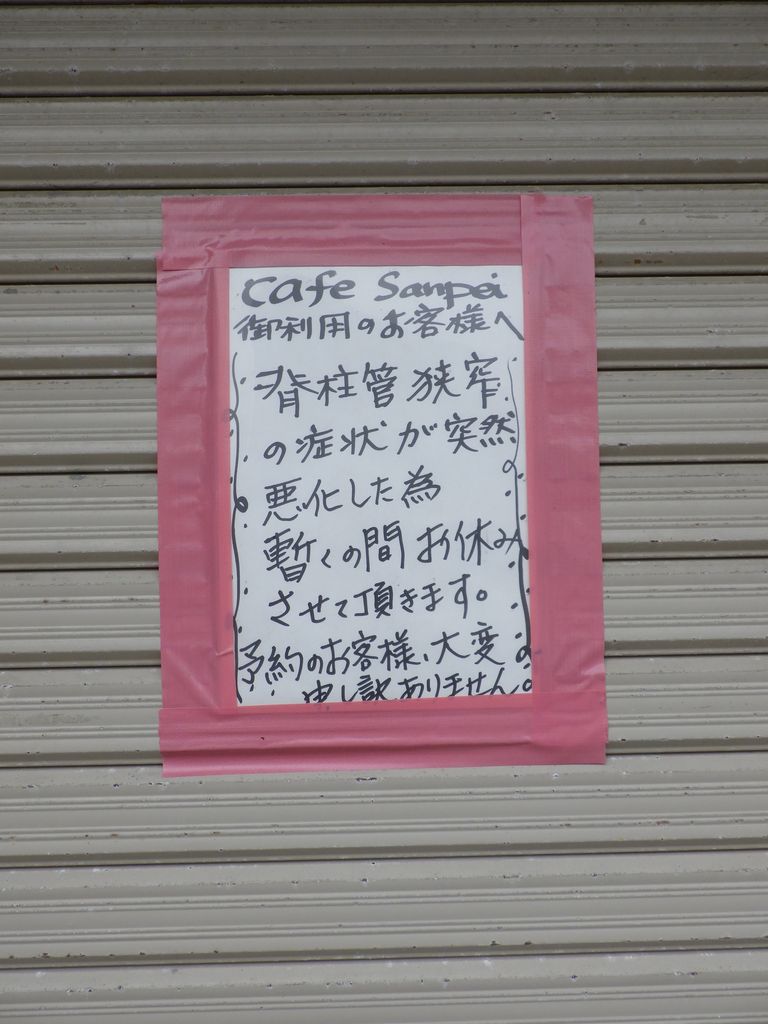 Cafe Sanpei
御利用のお客様へ
脊柱管狭窄
の症状が突然
悪化した為
暫くの間お休み
させて頂きます。
予約のお客様、大変
申し訳ありません。